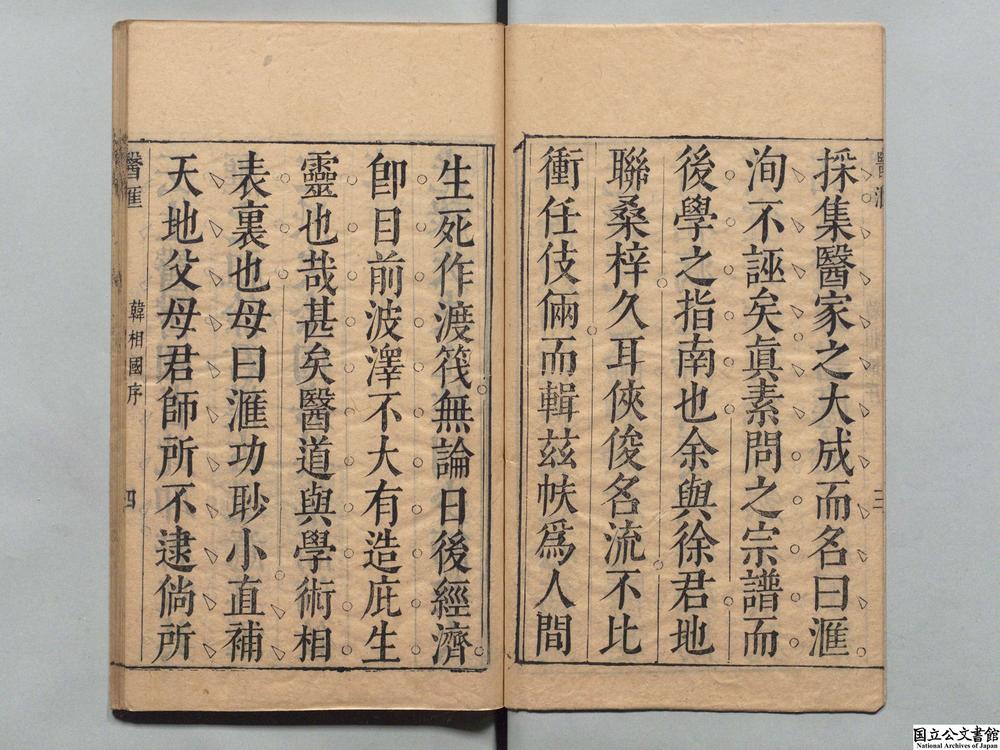 採集醫家之大成而名曰滙
洵不誣矣眞素問之宗譜而
後學之指南也余與徐君地
聯桑梓久耳俠俊名流不比
衝任伎倆而輯茲帙爲人間
三
生死作渡筏無論日後經濟
卽目前波澤不大有造庇生
靈也哉甚矣醫道與學術相
表裏也毋曰滙功眇小直補
天地父母君師所不逮倘所
醫滙
韓相國序
四
国立公文書館
National Archives of Japan